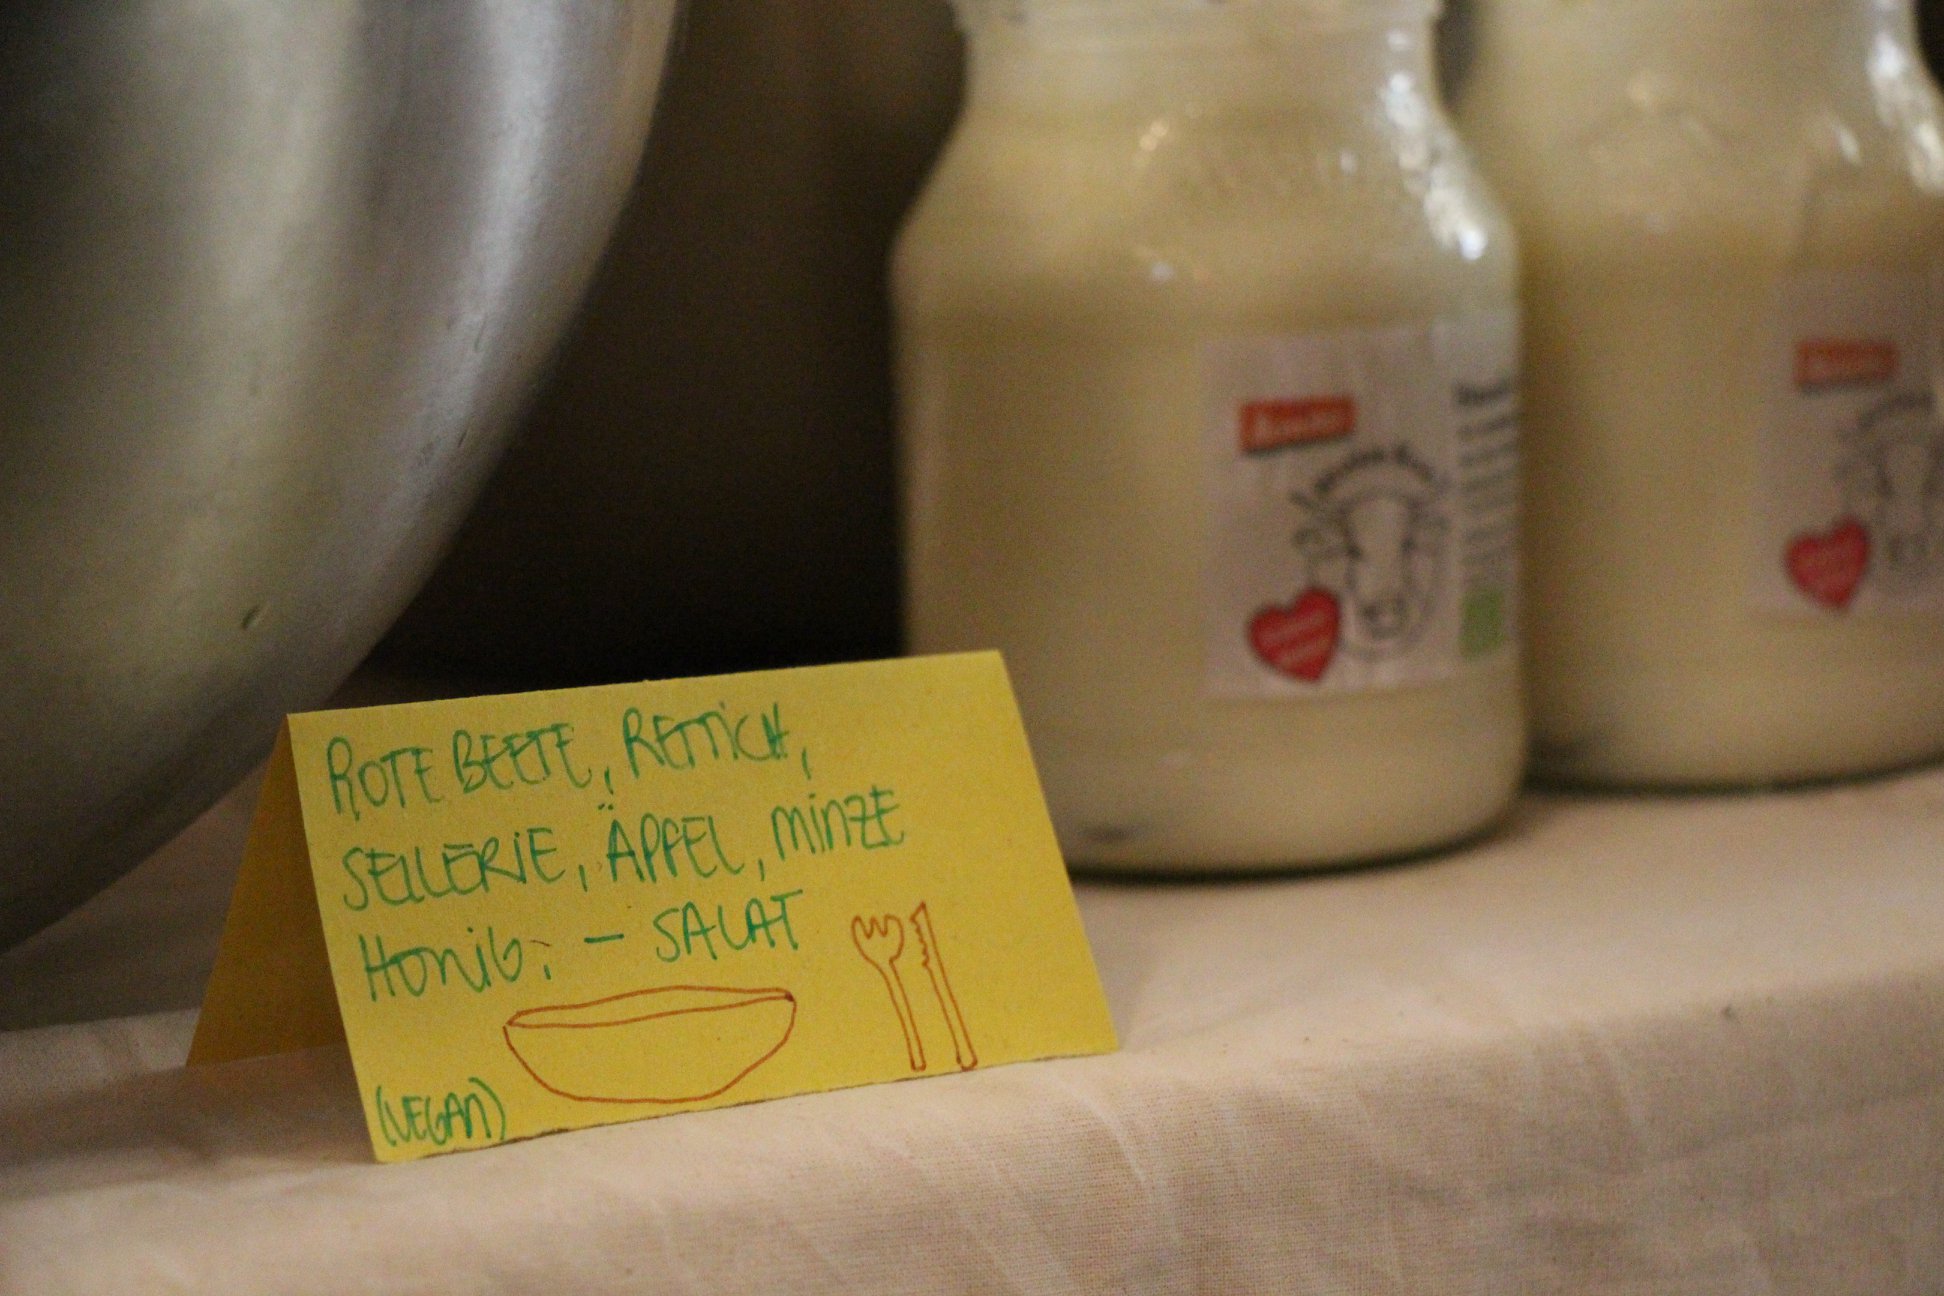 ROTE BEETE, RETTiCH,
SELLERiE, ÄPFEL, MiNZE
HONiG, - SALAT
(VEGAN)